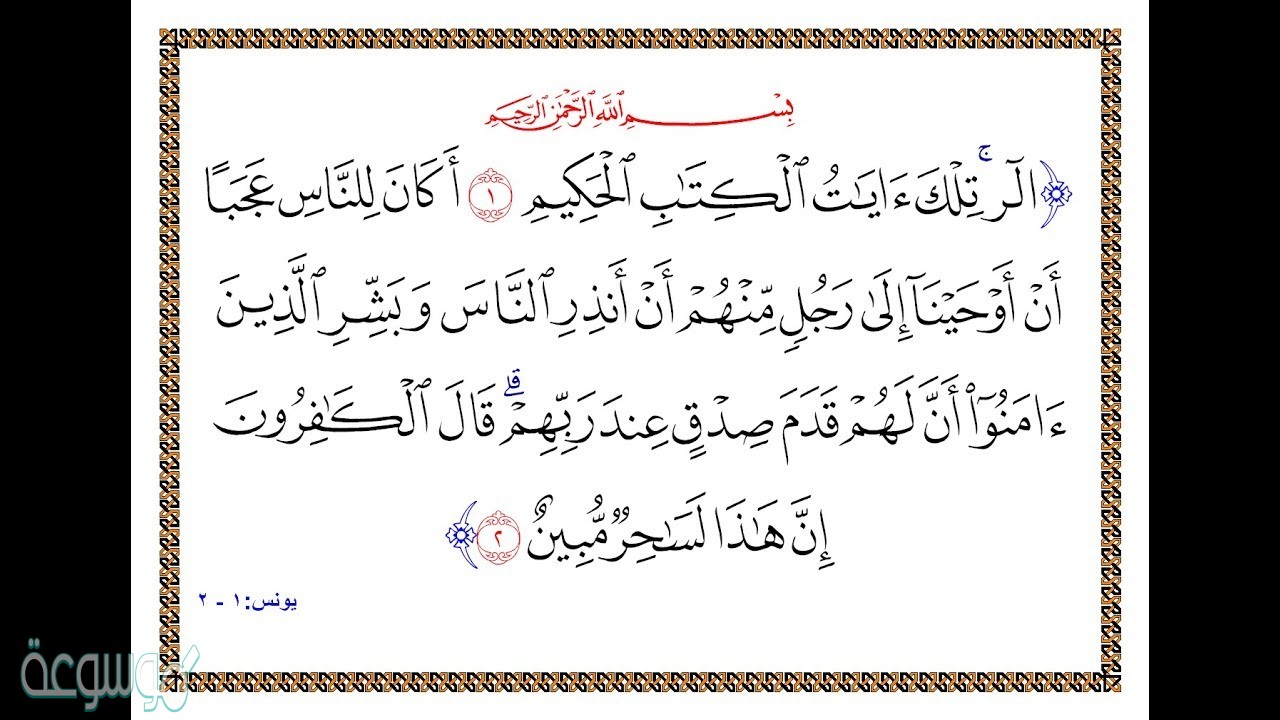 بِسْمِ ٱللَّهِ ٱلرَّحْمَٰنِ ٱلرَّحِيمِ
﴿الٓرۚ تِلْكَ ءَايَٰتُ ٱلْكِتَٰبِ ٱلْحَكِيمِ ١ أَكَانَ لِلنَّاسِ عَجَبًا
أَنْ أَوْحَيْنَآ إِلَىٰ رَجُلٍ مِّنْهُمْ أَنْ أَنذِرِ ٱلنَّاسَ وَبَشِّرِ ٱلَّذِينَ
ءَامَنُوٓا۟ أَنَّ لَهُمْ قَدَمَ صِدْقٍ عِندَ رَبِّهِمْۗ قَالَ ٱلْكَٰفِرُونَ
إِنَّ هَٰذَا لَسَٰحِرٌ مُّبِينٌ ٢﴾
يونس: ١ - ٢
موسوعة